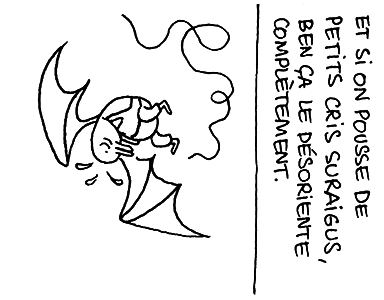 ET SI ON POUSSE DE
PETITS CRIS SURAIGUS,
BEN ÇA LE DÉSORIENTE
COMPLÈTEMENT.